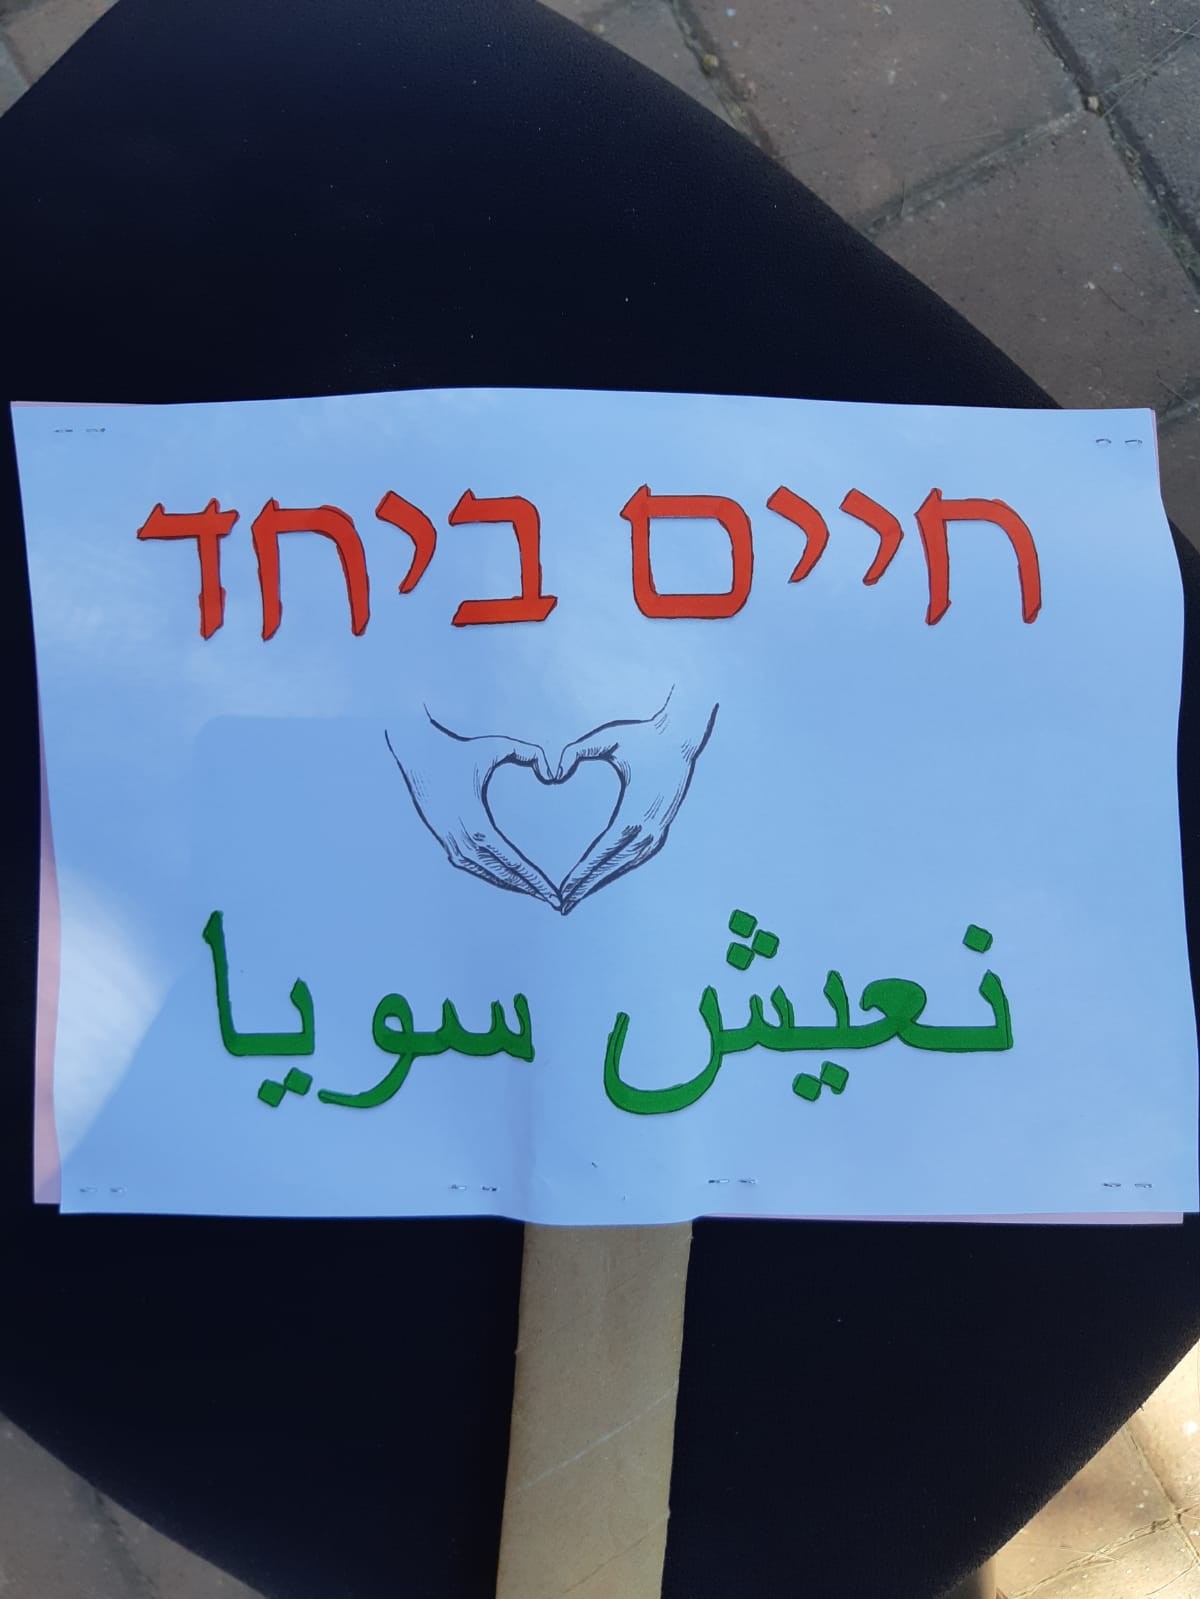 חיים ביחד
نعيش سويا